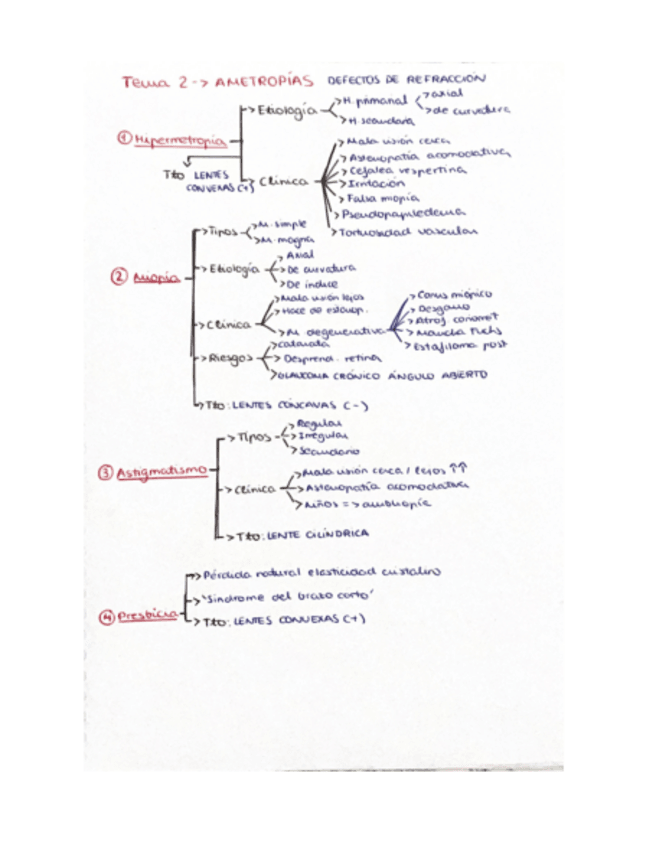 Tema 2 -> AMETROPÍAS DEFECTOS DE REFRACCIÓN
① Hipermetropía
Etiología
H. primaria
axial
de curvatura
H. secundaria
Tto LENTES
CONVEXAS (+)
Clínica
Mala visión cerca
Astenopatía acomodativa
Cefalea vespertina
Irritación
Falsa miopía
Pseudopapiledema
Tortuosidad vascular
② Miopía
Tipos
M. simple
M. magna
Etiología
Axial
De curvatura
De índice
Clínica
Mala visión lejos
M. degenerativa
Conus miópico
Desgarro
Atrof. coriorret
Mancha Fuchs
Estafiloma post
Riesgos
Catarata
Desprend. retina
GLAUCOMA CRÓNICO ÁNGULO ABIERTO
Tto: LENTES CÓNCAVAS (-)
③ Astigmatismo
Tipos
Regular
Irregular
Secundario
Clínica
Mala visión cerca / lejos ↑↑
Astenopatía acomodativa
Niños => ambliopía
Tto: LENTE CILÍNDRICA
④ Presbicia
Pérdida natural elasticidad cristalino
'Síndrome del brazo corto'
Tto: LENTES CONVEXAS (+)